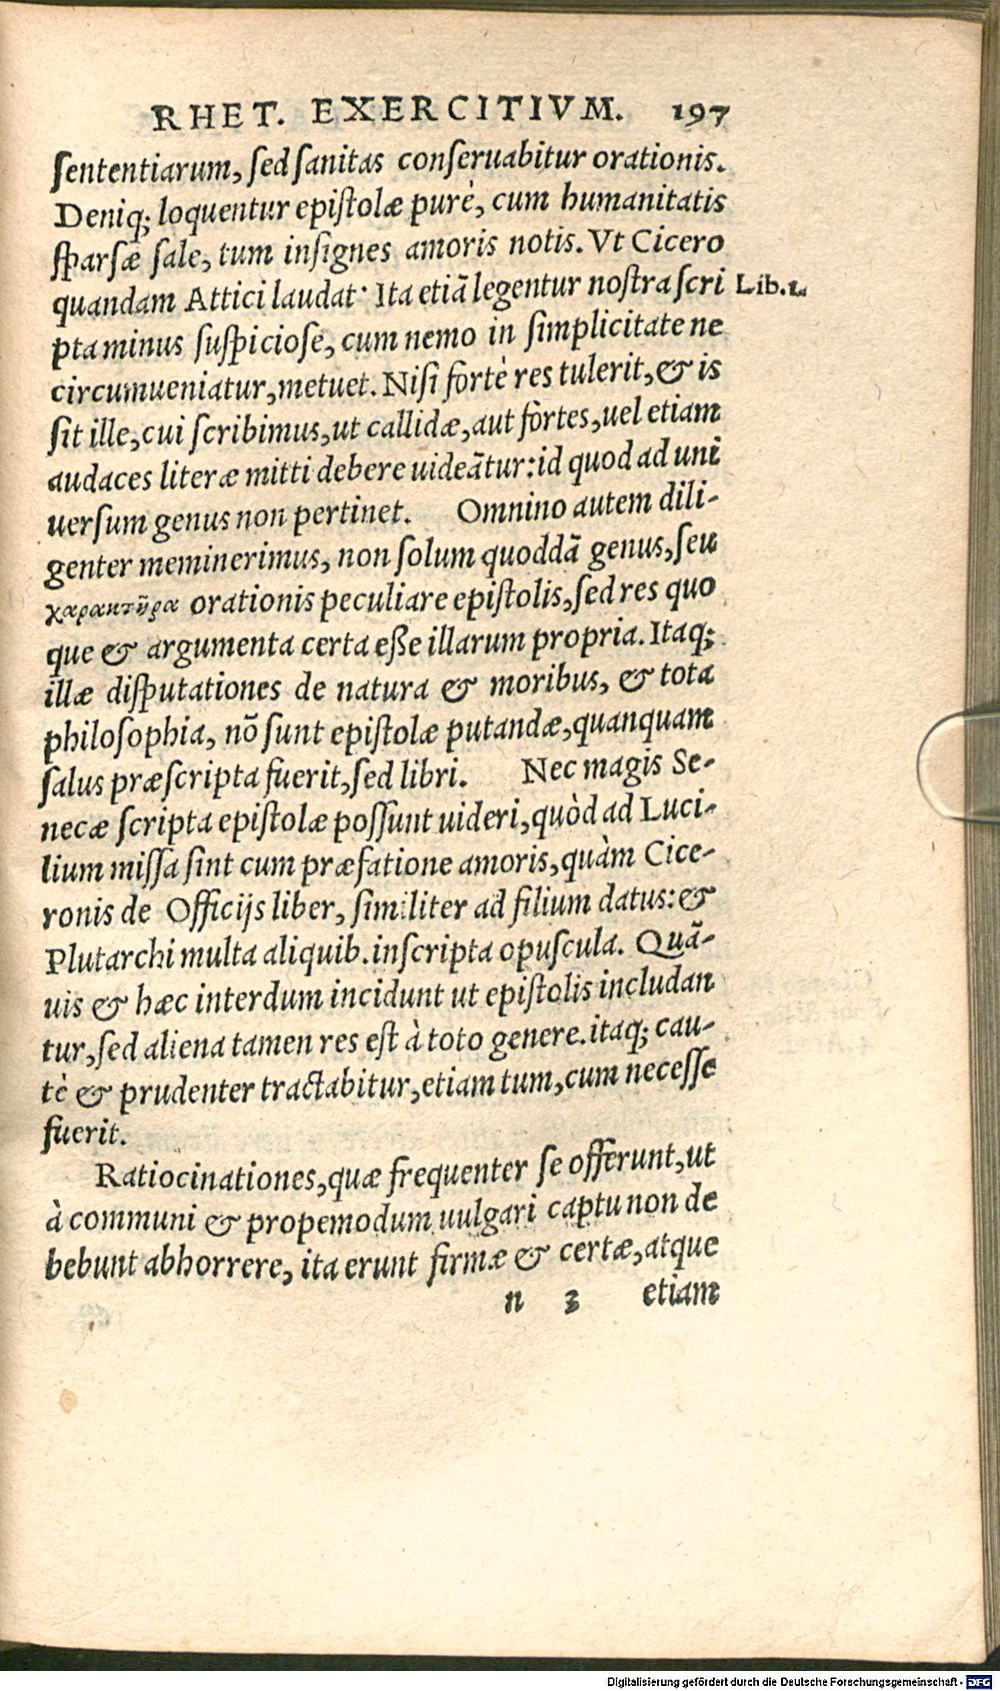 RHET. EXERCITIVM. 197
ſententiarum, ſed ſanitas conſeruabitur orationis.
Deniq; loquentur epiſtolæ purè, cum humanitatis
ſparſæ ſale, tum inſignes amoris notis. Vt Cicero
quandam Attici laudat. Ita etiã legentur noſtra ſcri Lib.1.
pta minus ſuſpicioſe, cum nemo in ſimplicitate ne
circumueniatur, metuet. Niſi fortè res tulerit, & is
ſit ille, cui ſcribimus, ut callidæ, aut fortes, uel etiam
audaces literæ mitti debere uideãtur: id quod ad uni
uerſum genus non pertinet. Omnino autem dili-
genter meminerimus, non ſolum quoddã genus, ſeu
χαρακτῆρα orationis peculiare epiſtolis, ſed res quo
que & argumenta certa eſſe illarum propria. Itaq;
illæ diſputationes de natura & moribus, & tota
philoſophia, nõ ſunt epiſtolæ putandæ, quanquam
ſalus præſcripta fuerit, ſed libri. Nec magis Se-
necæ ſcripta epiſtolæ poſſunt uideri, quòd ad Luci-
lium miſſa ſint cum præfatione amoris, quàm Cice-
ronis de Officijs liber, ſimiliter ad filium datus: &
Plutarchi multa aliquib. inſcripta opuſcula. Quã-
uis & hæc interdum incidunt ut epiſtolis includan
tur, ſed aliena tamen res eſt à toto genere. itaq; cau-
tè & prudenter tractabitur, etiam tum, cum neceſſe
fuerit.
Ratiocinationes, quæ frequenter ſe offerunt, ut
à communi & propemodum uulgari captu non de
bebunt abhorrere, ita erunt firmæ & certæ, atque
n 3 etiam
Digitalisierung gefördert durch die Deutsche Forschungsgemeinschaft - DFG